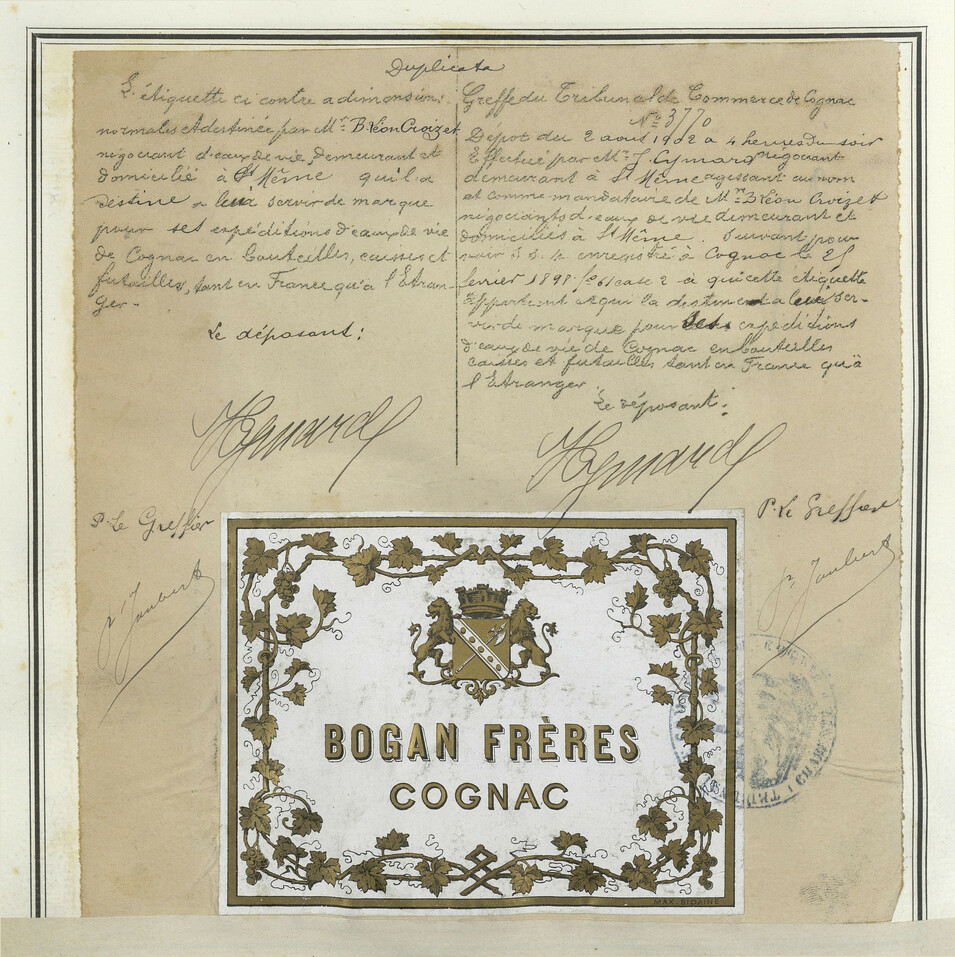 Duplicata
L'étiquette ci contre a dimensions
normales et destinée par Mr. B. Léon Croizet
négociant d'eaux de vie, demeurant et
domicilié à St Même qu'il a
destine a leur servir de marque
pour ses expéditions d'eaux de vie
de Cognac en bouteilles, caisses et
futailles, tant en France qu'à l'Etran-
ger.
Le déposant:
Hymard
P. Le Greffier
P. Joubert
Greffe du Tribunal de Commerce de Cognac
No 3770
Depot du 2 aout 1902 a 4 heures du soir
Effectué par Mr. J. Eymard négociant
demeurant à St Même agissant au nom
et comme mandataire de Mrs B. Léon Croizet
négociants d'eaux de vie demeurant et
domiciliés à St Même. Suivant pou-
voir S. S. P. enregistré à Cognac le 25
février 1898 fo 61 case 2 à qui cette étiquette
appartient et qui la destinent a leur ser-
vir de marque pour ses expéditions
d'eaux de vie de Cognac en bouteilles
caisses et futailles tant en France qu'à
l'Etranger.
Le déposant:
Hymard
P. Le Greffier
P. Joubert
BOGAN FRÈRES
COGNAC
MAX. SIDAINE